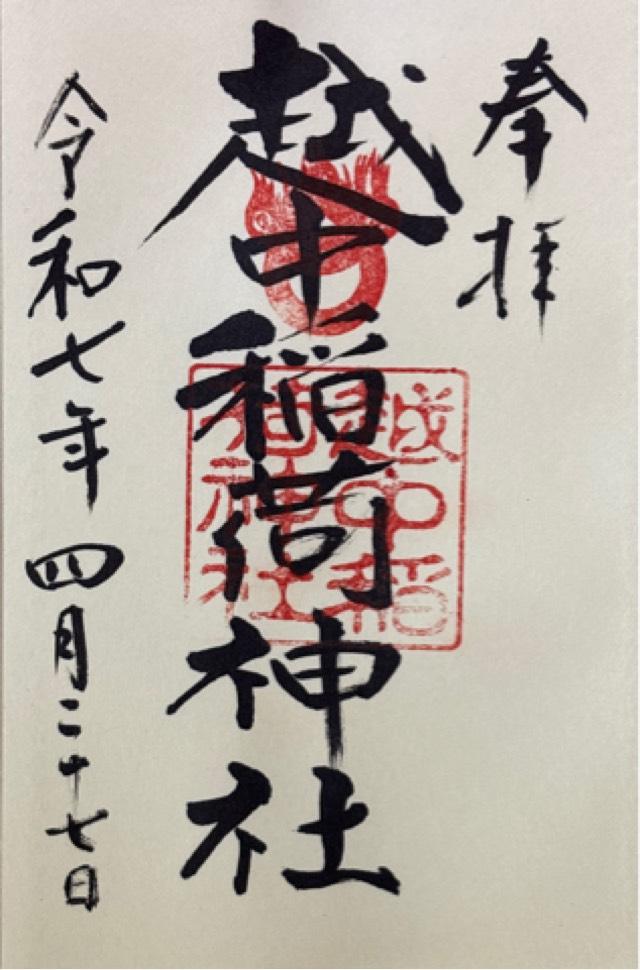 奉拝
越中稲荷神社
越中稲
荷神社
令和七年四月二十七日